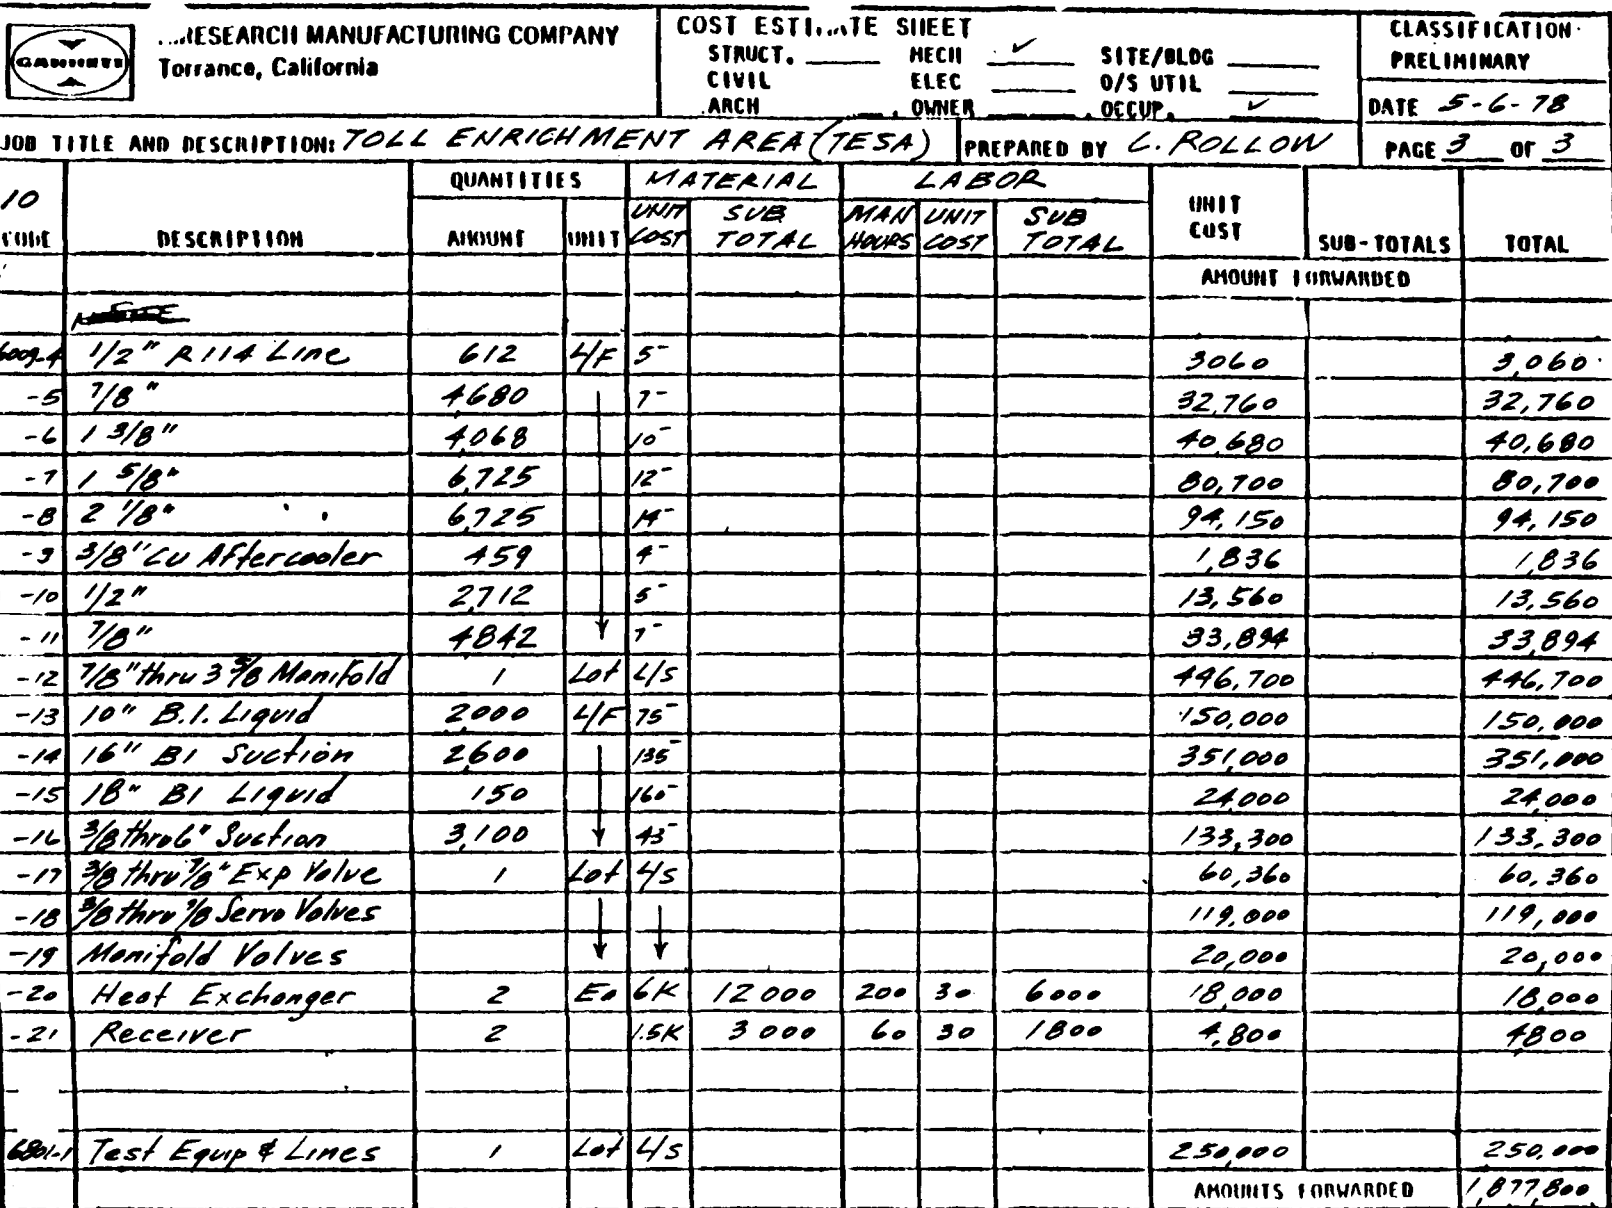 GARRETT
RESEARCH MANUFACTURING COMPANY
Torrance, California
COST ESTIMATE SHEET
STRUCT. ____ MECH ✓ SITE/BLDG ____
CIVIL ELEC ____ O/S UTIL ____
ARCH ____ OWNER ____ OCCUP. ✓
CLASSIFICATION
PRELIMINARY
DATE 5-6-78
JOB TITLE AND DESCRIPTION: TOLL ENRICHMENT AREA (TESA) PREPARED BY C. ROLLOW PAGE 3 OF 3
10 QUANTITIES MATERIAL LABOR
CODE DESCRIPTION AMOUNT UNIT UNIT COST SUB TOTAL MAN HOURS UNIT COST SUB TOTAL UNIT COST SUB-TOTALS TOTAL
AMOUNT FORWARDED
6009-4 1/2" R114 Line 612 L/F 5- 3060 3,060
-5 7/8" 4680 7- 32,760 32,760
-6 1 3/8" 4,068 10- 40,680 40,680
-7 1 5/8" 6,725 12- 80,700 80,700
-8 2 1/8" 6,725 14- 94,150 94,150
-9 3/8" CU Aftercooler 459 4- 1,836 1,836
-10 1/2" 2,712 5- 13,560 13,560
-11 7/8" 4842 7- 33,894 33,894
-12 7/8" thru 3 5/8 Manifold 1 Lot L/S 446,700 446,700
-13 10" B.I. Liquid 2000 L/F 75- 150,000 150,000
-14 16" BI Suction 2600 135- 351,000 351,000
-15 18" BI Liquid 150 160- 24,000 24,000
-16 3/8 thru 6" Suction 3,100 43- 133,300 133,300
-17 3/8 thru 7/8" Exp Valve 1 Lot L/S 60,360 60,360
-18 3/8 thru 7/8 Servo Valves 119,000 119,000
-19 Manifold Valves 20,000 20,000
-20 Heat Exchanger 2 Ea 6K 12 000 200 30 6000 18,000 18,000
-21 Receiver 2 1.5K 3 000 60 30 1800 4,800 4800
6801-1 Test Equip & Lines 1 Lot L/S 250,000 250,000
AMOUNTS FORWARDED 1,877,800